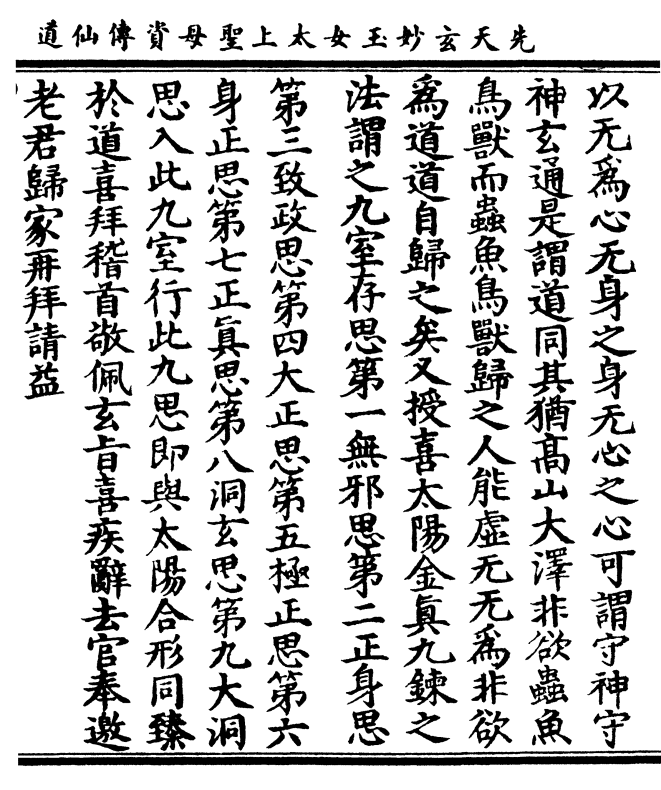 先天玄妙玉女太上聖母資傳仙道
以无為心无身之身无心之心可謂守神守
神玄通是謂道同其猶高山大澤非欲蟲魚
鳥獸而蟲魚鳥獸歸之人能虛无无為非欲
為道道自歸之矣又授喜太陽金真九鍊之
法謂之九室存思第一無邪思第二正身思
第三致政思第四大正思第五極正思第六
身正思第七正真思第八洞玄思第九大洞
思入此九室行此九思即與太陽合形同臻
於道喜拜稽首敬佩玄旨喜疾辭去官奉邀
老君歸家再拜請益